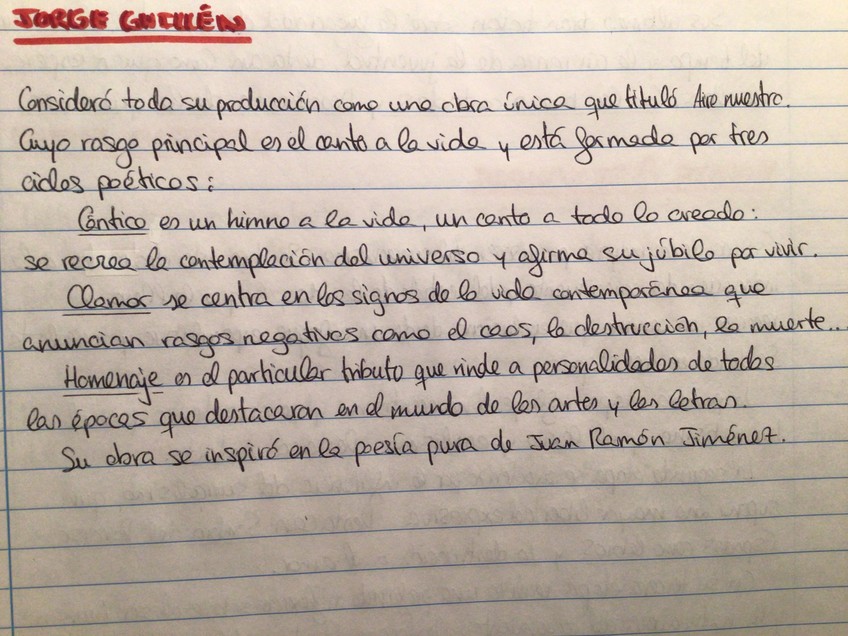 JORGE GUILLÉN
Consideró toda su producción como una obra única que tituló Aire nuestro.
Cuyo rasgo principal es el canto a la vida y está formada por tres
ciclos poéticos:
Cántico es un himno a la vida, un canto a todo lo creado:
se recrea la contemplación del universo y afirma su júbilo por vivir.
Clamor se centra en los signos de la vida contemporánea que
anuncian rasgos negativos como el caos, la destrucción, la muerte...
Homenaje es el particular tributo que rinde a personalidades de todas
las épocas que destacaron en el mundo de las artes y las letras.
Su obra se inspiró en la poesía pura de Juan Ramón Jiménez.